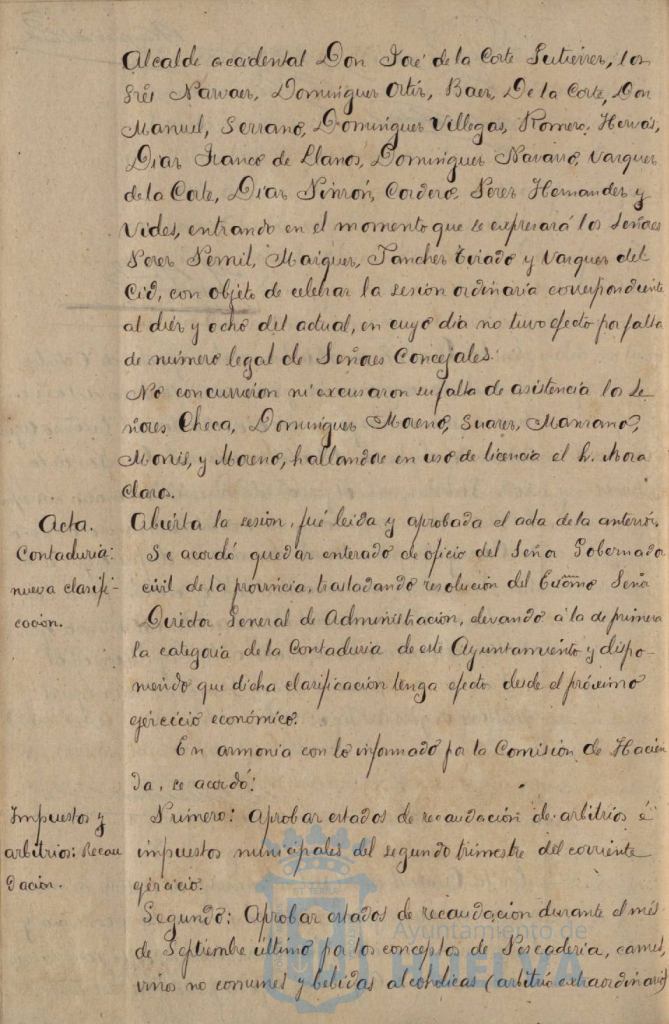 Alcalde accidental Don José de la Corte Gutierrez, los
Srēs Narvaez, Dominguez Ortiz, Baez, De la Corte, Don
Manuel, Serrano, Dominguez Villegas, Romero, Hervás,
Diaz Franco de Llanos, Dominguez Navarro, Vazquez
de la Corte, Diaz Pinzón, Cordero, Perez Hernandez y
Vides, entrando en el momento que se expresará los Señores
Perez Pemil, Maiquez, Sanchez Tirado y Vazquez del
Cid, con objeto de celebrar la sesión ordinaria correspondiente
al diez y ocho del actual, en cuyo dia no tuvo efecto por falta
de número legal de Señores Concejales.
No concurrieron ni excusaron su falta de asistencia los Se-
ñores Checa, Dominguez Moreno, Suarez, Manzano,
Monis, y Moreno, hallandose en uso de licencia el Sr. Mora
Claros.
Acta.
Abierta la sesión, fué leida y aprobada el acta de la anterior.
Contaduria:
nueva clasifi-
cación.
Se acordó quedar enterado de oficio del Señor Gobernador
civil de la provincia, trasladando resolución del Excmo Señor
Director General de Administración, elevando á la de primera
la categoria de la Contaduria de este Ayuntamiento y dispo-
niendo que dicha clasificación tenga efecto desde el próximo
ejercicio económico.
En armonia con lo informado por la Comisión de Hacien
da, se acordó:
Impuestos y
arbitrios: Recau
dación.
Primero: Aprobar estados de recaudación de arbitrios é
impuestos municipales del segundo trimestre del corriente
ejercicio.
Segundo: Aprobar estados de recaudación durante el mes
de Septiembre último por los conceptos de Pescaderia, carnes,
vinos no comunes y bebidas alcohólicas (arbitrio extraordinario)
Ayuntamiento de
HUELVA